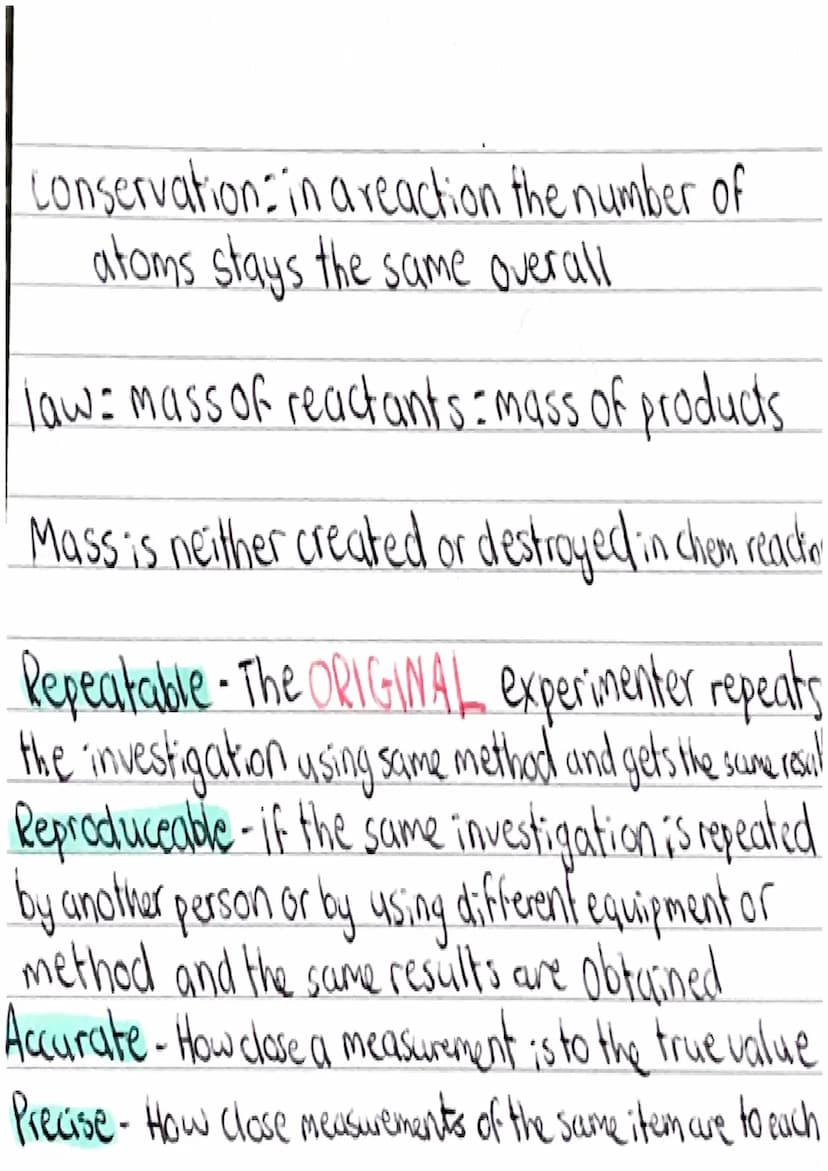 Conservation: in a reaction the number of
atoms stays the same overall
law = mass of reactants = mass of products
Mass is neither created or destroyed in chem reactio
Repeatable - The ORIGINAL experimenter repeats
the investigation using same method and gets the same resul
Reproduceable - if the same investigation is repeated
by another person or by using different equipment or
method and the same results are obtained
Accurate - How close a measurement is to the true value
Precise - How close measurements of the same item are to each